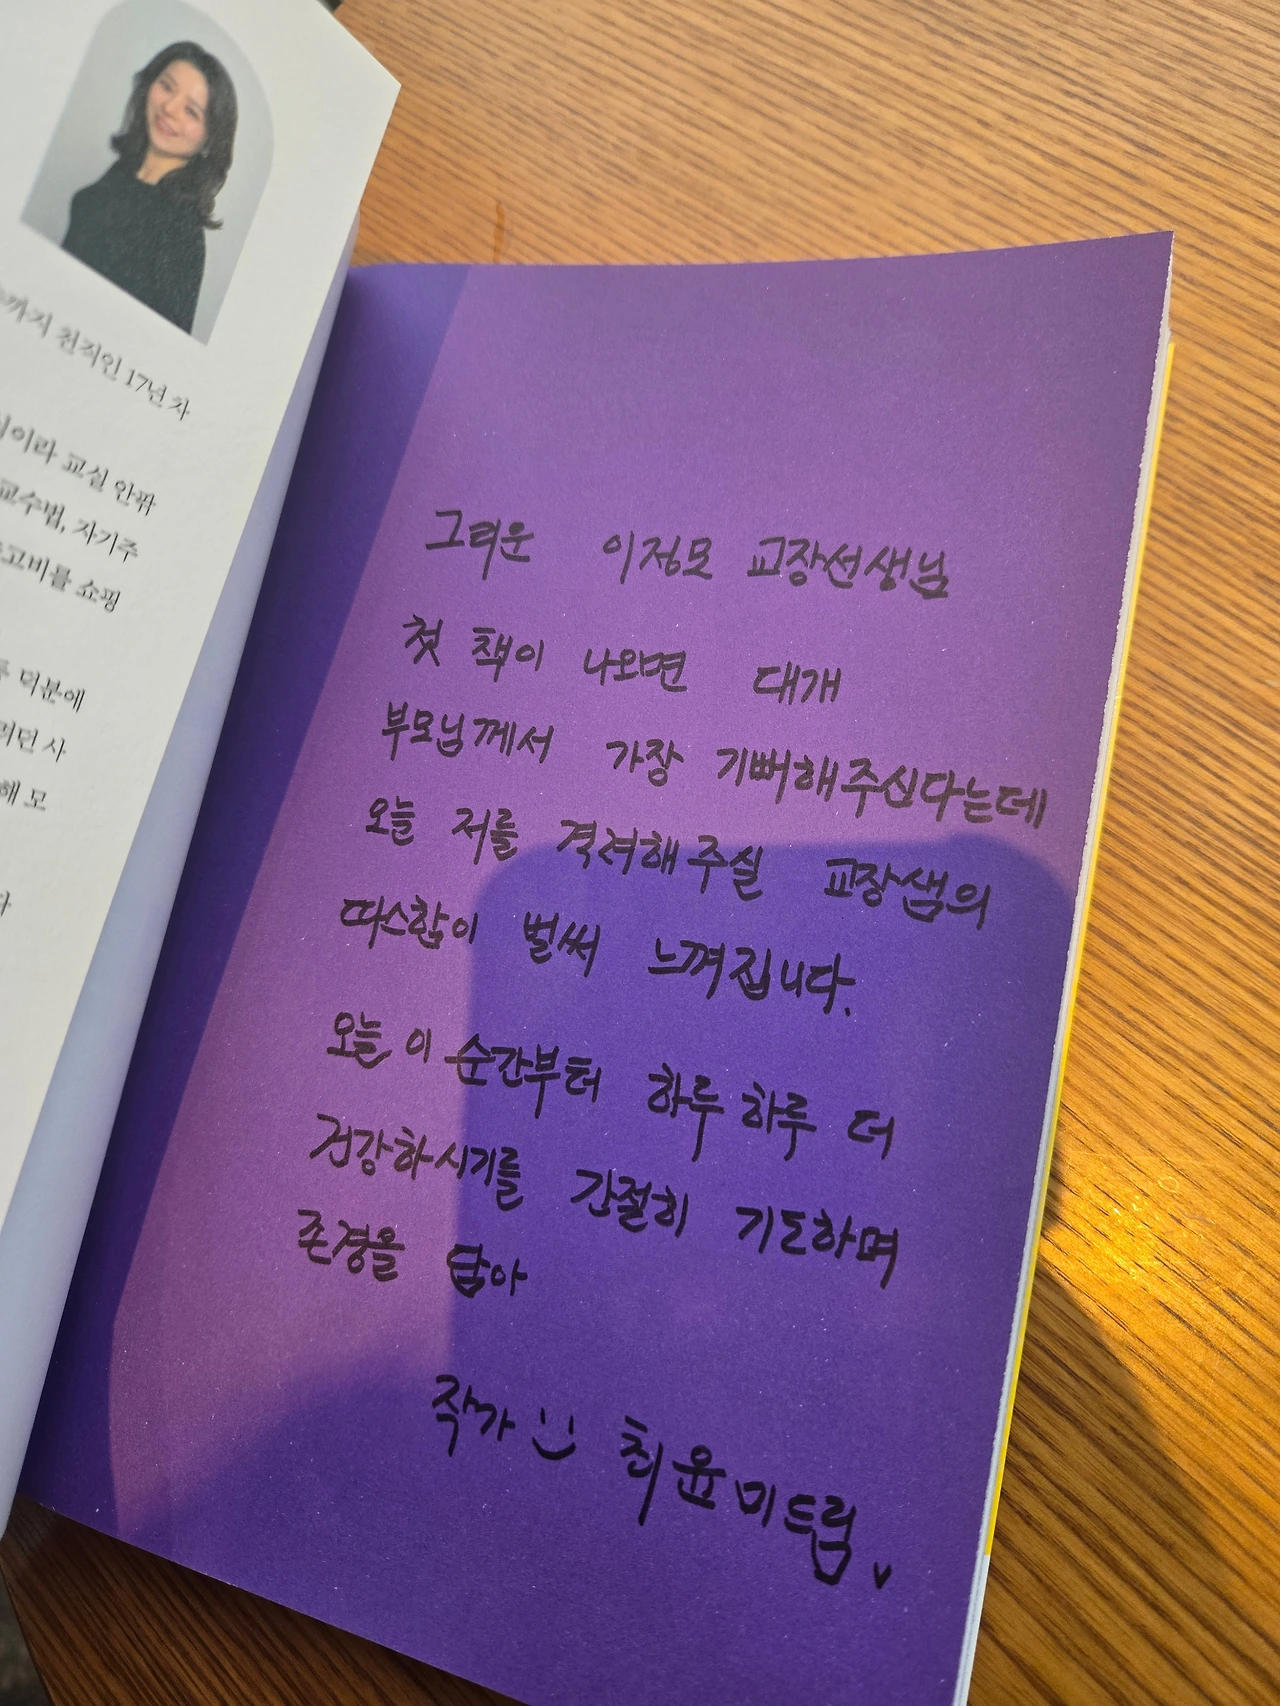 까지 천직인 17년 차
이라 교실 안팎
교수법, 자기주
고비를 쇼핑
덕분에
러던 사
해 모
그리운 이정모 교장선생님
첫 책이 나오면 대개
부모님께서 가장 기뻐해주신다는데
오늘 저를 격려해주실 교장샘의
따스함이 벌써 느껴집니다.
오늘 이 순간부터 하루하루 더
건강하시기를 간절히 기도하며
존경을 담아
작가 최윤미드림